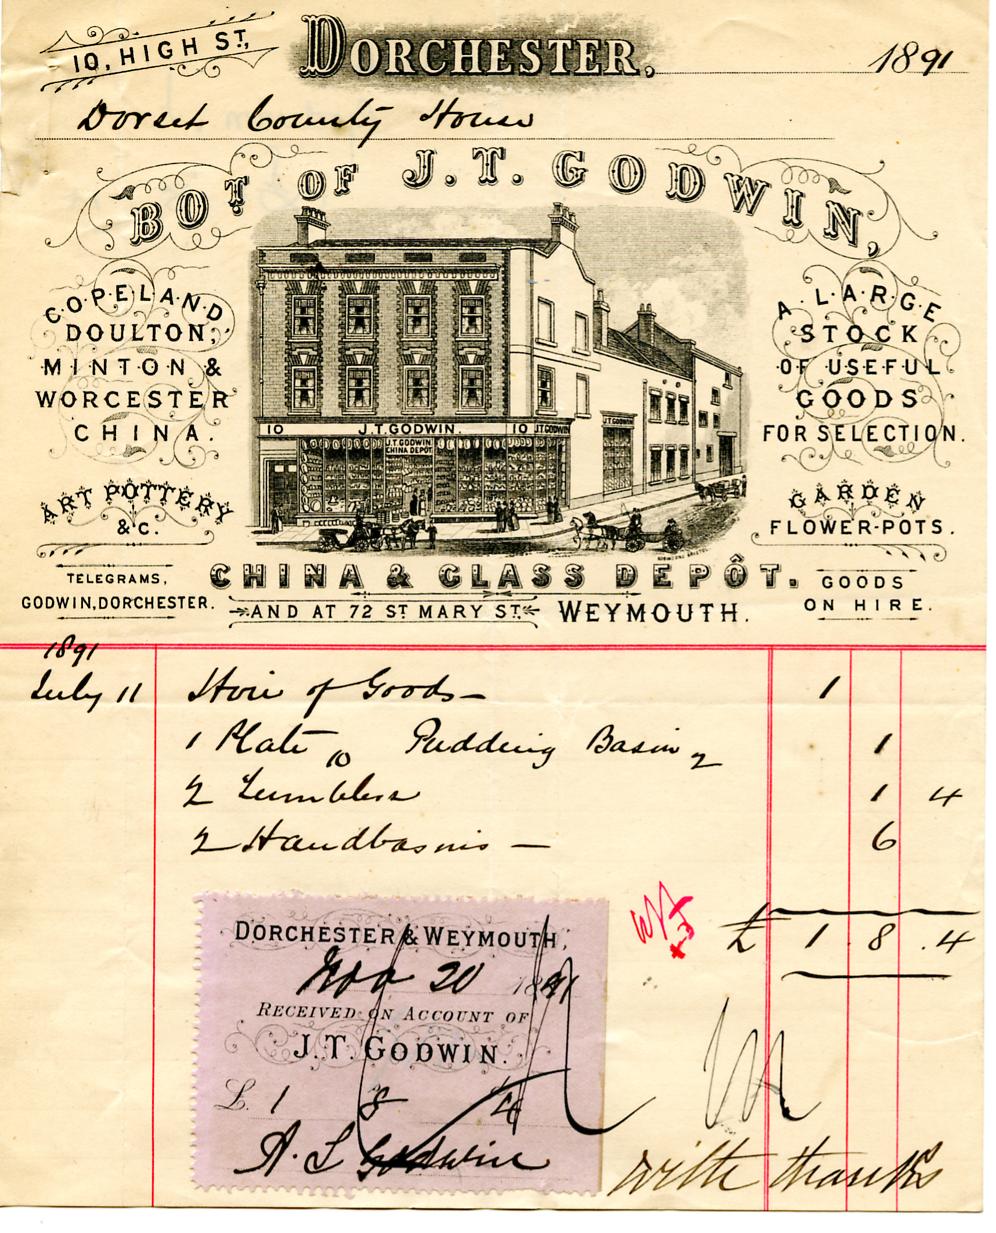 10, HIGH ST,
DORCHESTER, 1891
Dorset County House
BOT OF J.T. GODWIN,
COPELAND,
DOULTON,
MINTON &
WORCESTER
CHINA.
ART POTTERY
&C.
A LARGE
STOCK
OF USEFUL
GOODS
FOR SELECTION.
GARDEN
FLOWER-POTS.
10 J.T.GODWIN. 10 J.T.GODWIN
J.T.GODWIN
CHINA DEPOT
J.T.GODWIN
TELEGRAMS,
GODWIN, DORCHESTER.
CHINA & GLASS DEPÔT.
AND AT 72 ST MARY ST. WEYMOUTH.
GOODS
ON HIRE.
1891
July 11 Hire of Goods— 1
1 Plate 10 Pudding Basin 2 1
2 Tumblers 1 4
2 Handbasins — 6
£ 1 . 8 . 4
DORCHESTER & WEYMOUTH,
Nov 20 1891
RECEIVED ON ACCOUNT OF
J.T. GODWIN.
£. 1 8 4
A. L Godwin
with thanks